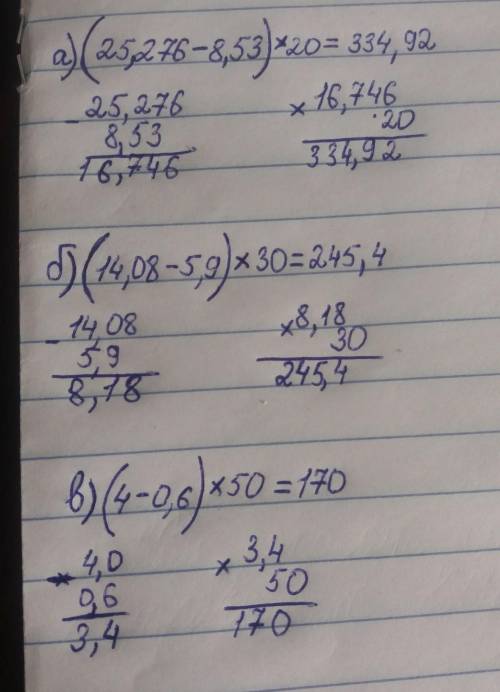 а) (25,276-8,53)×20=334,92
-25,276
8,53
16,746
×16,746
20
334,92
б) (14,08-5,9)×30=245,4
-14,08
5,9
8,18
×8,18
30
245,4
в) (4-0,6)×50=170
4,0
0,6
3,4
×3,4
50
170